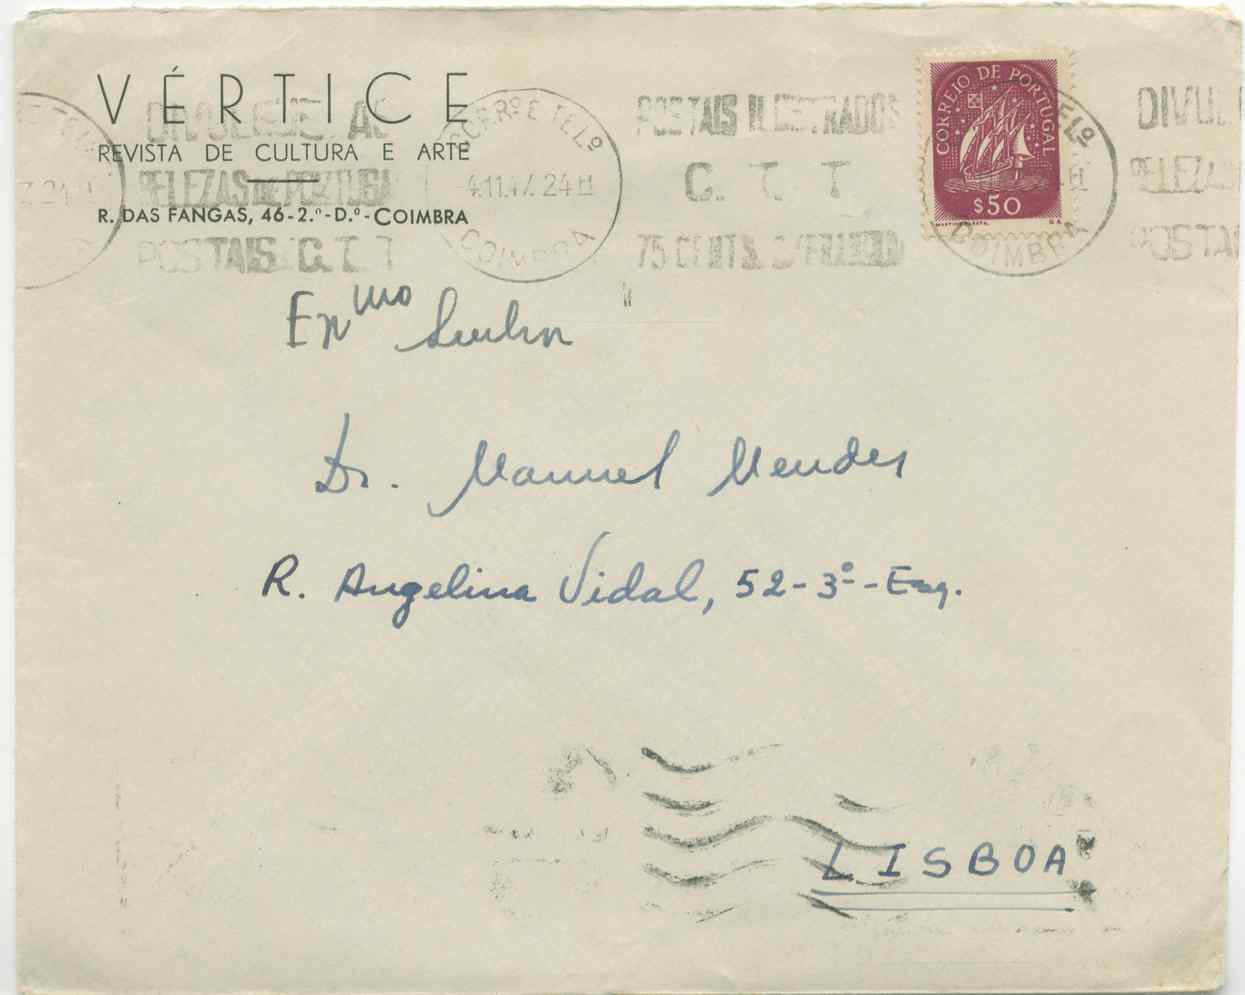 VÉRTICE
REVISTA DE CULTURA E ARTE
R. DAS FANGAS, 46-2.º-D.º-COIMBRA
CORREIO DE PORTUGAL
$50
DIVULGUE AS
BELEZAS DE PORTUGAL
POSTAIS C. T. T
4.11.47.24H
COIMBRA
POSTAIS ILUSTRADOS
C. T. T
75 CENT
TELº
COIMBRA
DIVUL
BELEZAS
POSTAI
Exmo Senhor
Dr. Manuel Mendes
R. Angelina Vidal, 52-3º-Esq.
LISBOA